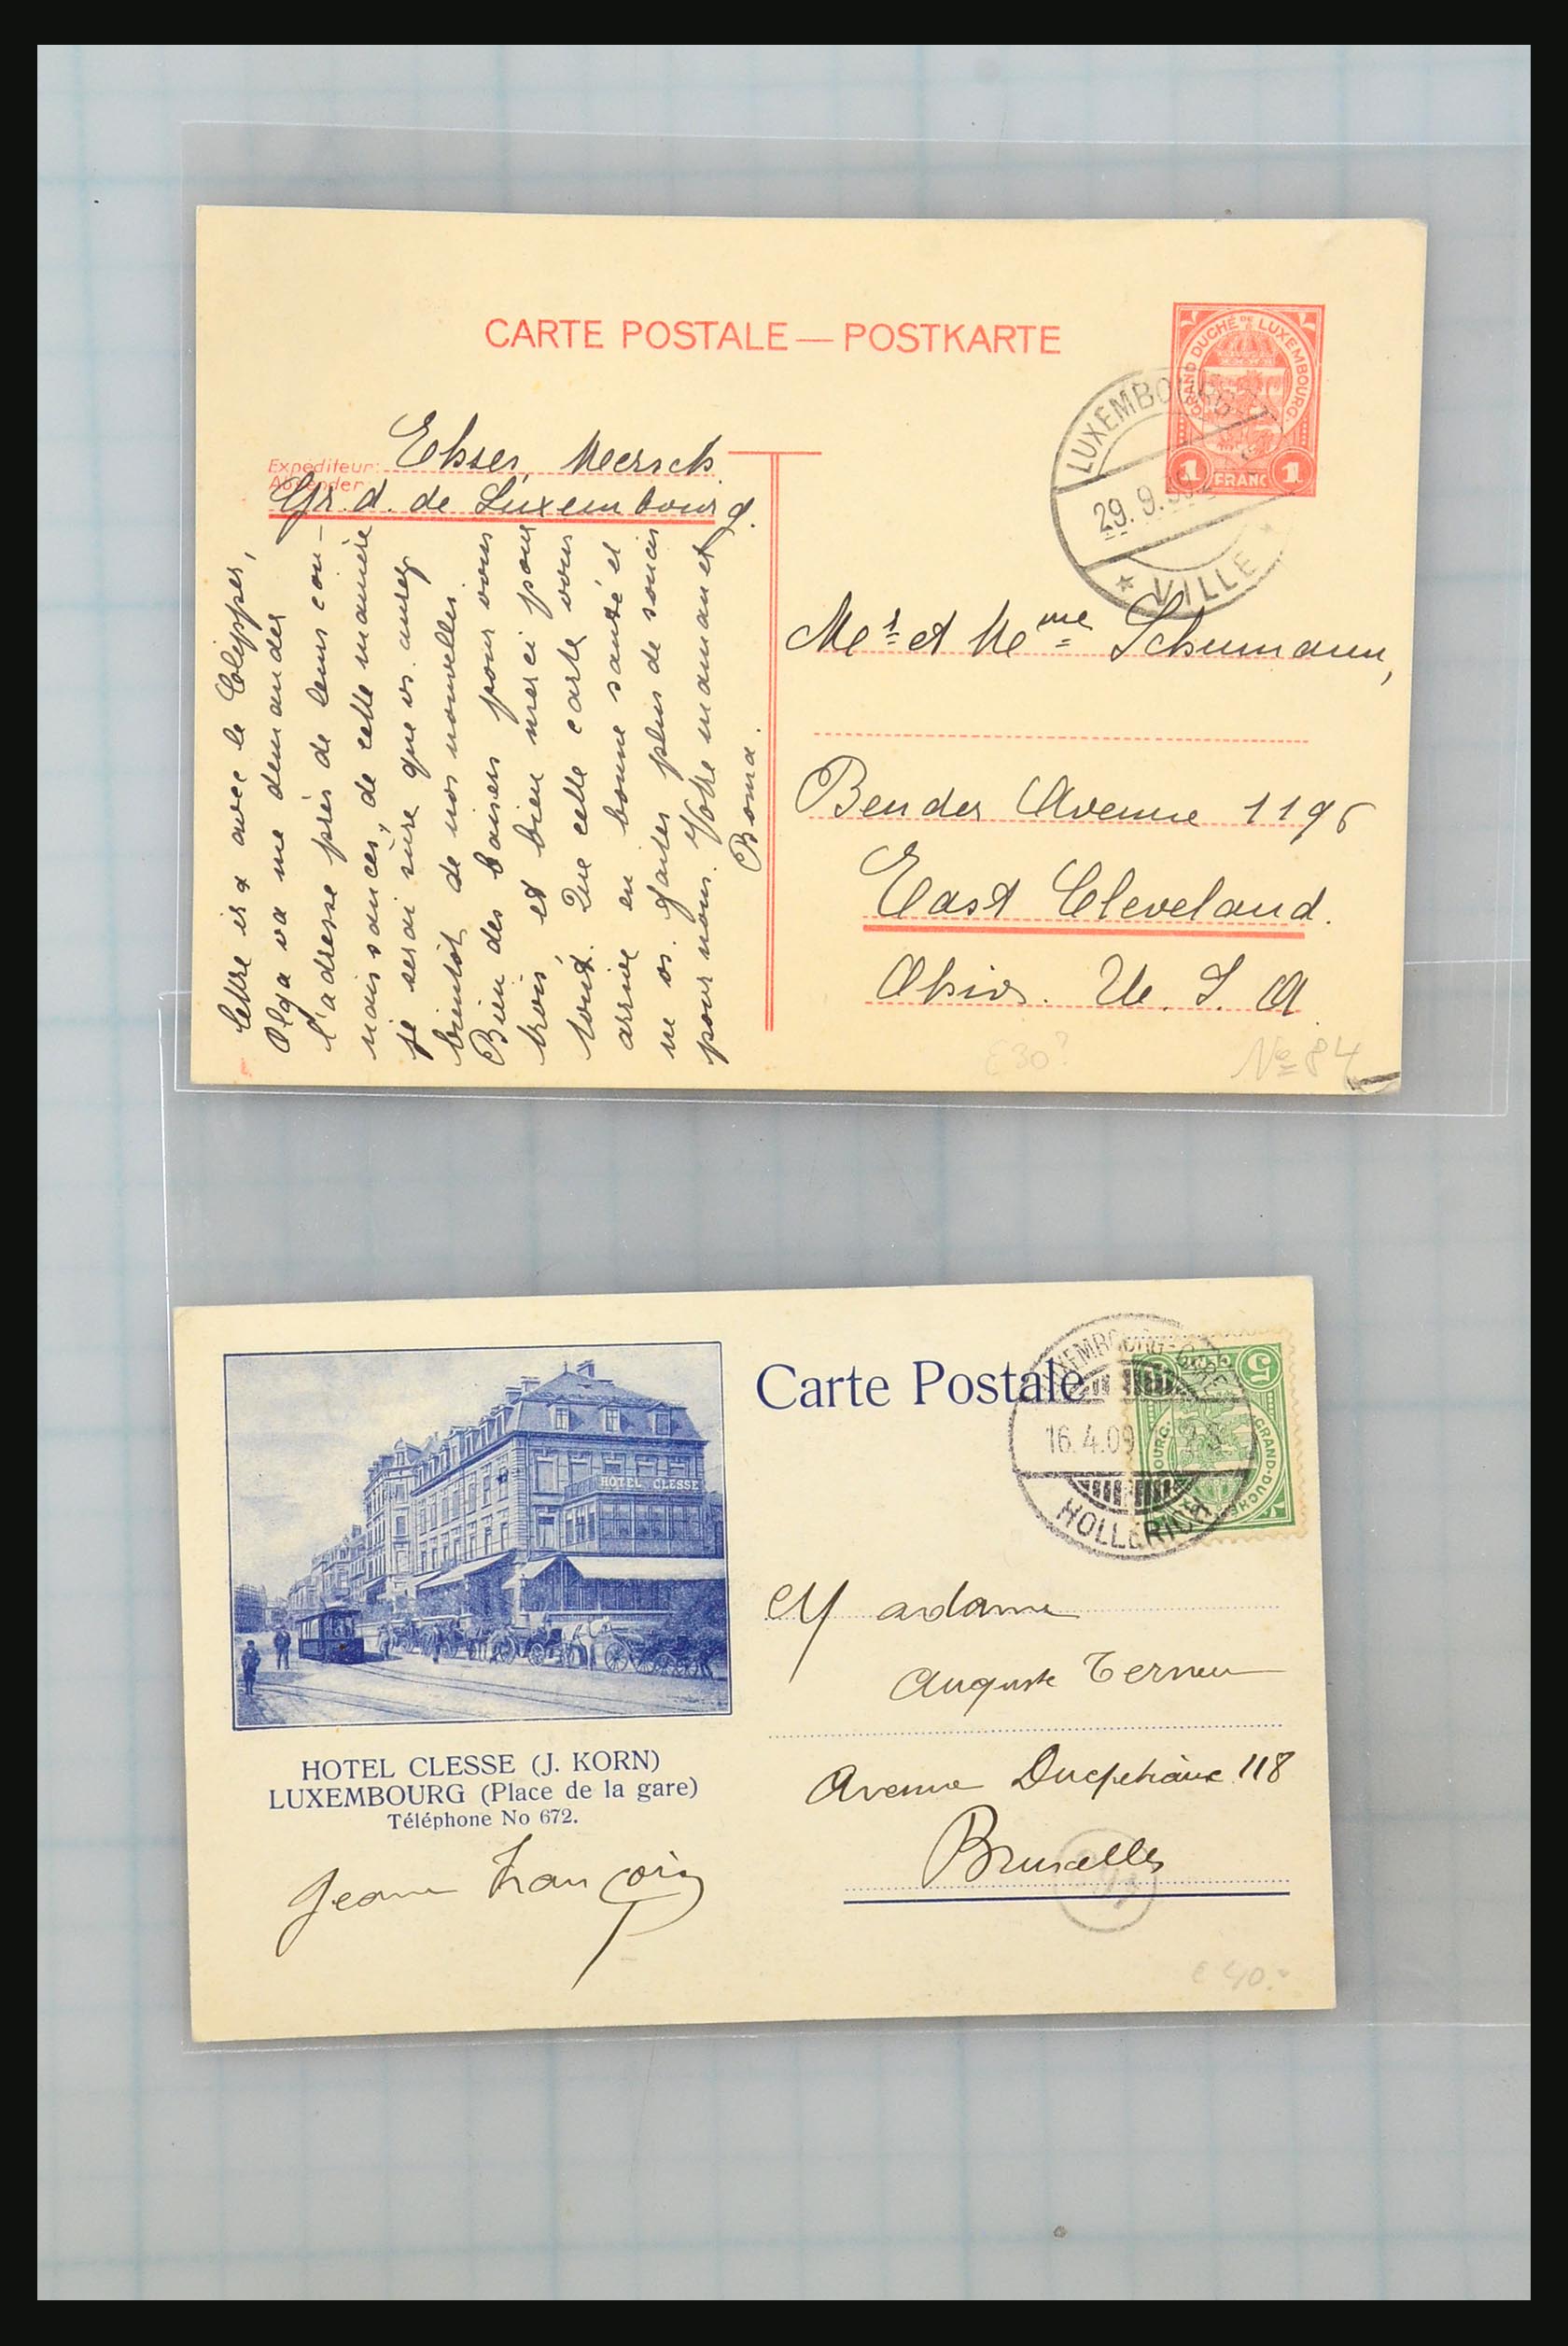 CARTE POSTALE — POSTKARTE
GRAND DUCHÉ DE LUXEMBOURG
1 FRANC 1
LUXEMBOURG
29.9.39
VILLE
Expéditeur:
Absender:
Elsser, Meersch
Gr. d. de Luxembourg.
lettre ira avec le Clipper,
Olga va me demander
l'adresse près de leurs con-
naissances, de cette manière
je serai sûre que vs. aurez
bientôt de nos nouvelles.
Bien des baisers pour vous
trois, et bien merci pour
tout. Que cette carte vous
arrive en bonne santé et
ne vs. faites plus de soucis
pour nous. Votre maman et
Boma.
Mr et Mme Schumann,
Bender Avenue 1196
East Cleveland.
Ohio. U. S. A.
£30?
No 84
Carte Postale
5
GRAND-DUCHÉ
LUXEMBOURG-GARE
16.4.09 2-3
HOLLERICH
HOTEL CLESSE
HOTEL CLESSE (J. KORN)
LUXEMBOURG (Place de la gare)
Téléphone No 672.
Jeanne Françoiz
Madame
Auguste
Avenue Ducpetiaux 118
Bruxelles
€ 40.-